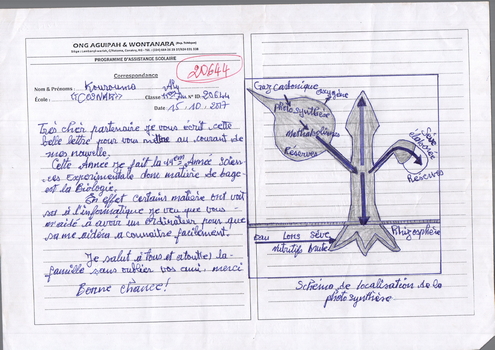 ONG AGUIPAH & WONTANARA (Rep. Guinée)
PROGRAMME D'ASSISTANCE SCOLAIRE
Correspondance
20644
Nom & Prénoms : Kourouma Aly
École : "COSNAK" Classe 11 N° ID: 20644
Date : 15.10.2017
Très cher partenaire je vous écrit cette
belle lettre pour vous mettre au courant de
mes nouvelle.
Cette Année je fait la 11em Année Scien-
ces experimentale donc matière de bage
est la Biologie.
En effet certains matière ont voit
sei à l'informatique je veu que vous
m'aidé à avoir un Ordinateur pour que
sa me aidera a connaître facilement.
Je salut à Tous et atoute la
famille sans oublier vos ami, merci
Bonne Chance!
Gaz Carbonique
oxygène
photosynthèse
Réserves
Sève
élaborée
Réserves
Rhizosphère
eau Ions Sève
nutritifs brute
Schéma de localisation de la
photosynthèse.